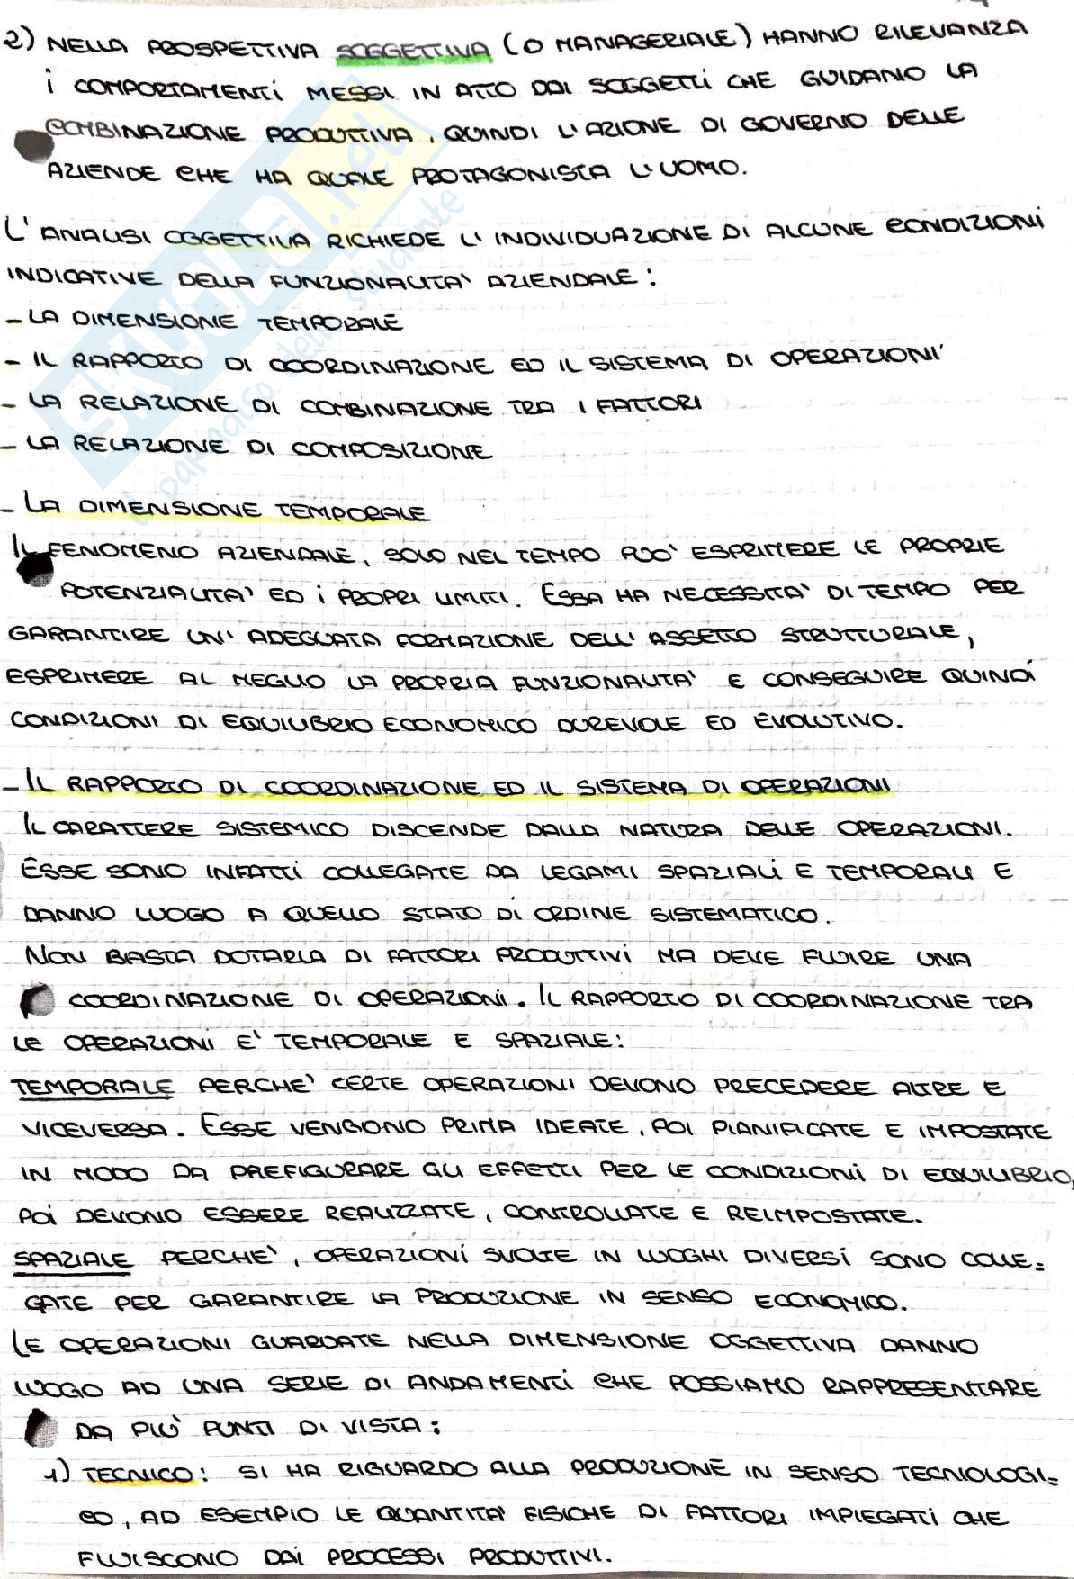 2) NELLA PROSPETTIVA SOGGETTIVA (O MANAGERIALE) HANNO RILEVANZA
i COMPORTAMENTI MESSI IN ATTO DAI SOGGETTI CHE GUIDANO LA
COMBINAZIONE PRODUTTIVA. QUINDI L'AZIONE DI GOVERNO DELLE
AZIENDE CHE HA QUALE PROTAGONISTA L'UOMO.
L'ANALISI OGGETTIVA RICHIEDE L'INDIVIDUAZIONE DI ALCUNE CONDIZIONI
INDICATIVE DELLA FUNZIONALITA' AZIENDALE:
- LA DIMENSIONE TEMPORALE
- IL RAPPORTO DI COORDINAZIONE ED IL SISTEMA DI OPERAZIONI
- LA RELAZIONE DI COMBINAZIONE TRA I FATTORI
- LA RELAZIONE DI COMPOSIZIONE
- LA DIMENSIONE TEMPORALE
IL FENOMENO AZIENDALE, SOLO NEL TEMPO PUO' ESPRIMERE LE PROPRIE
POTENZIALITA' ED i PROPRI LIMITI. ESSA HA NECESSITA' DI TEMPO PER
GARANTIRE UN' ADEGUATA FORMAZIONE DELL'ASSETTO STRUTTURALE,
ESPRIMERE AL MEGLIO LA PROPRIA FUNZIONALITA' E CONSEGUIRE QUINDI
CONDIZIONI DI EQUILIBRIO ECONOMICO DUREVOLE ED EVOLUTIVO.
- IL RAPPORTO DI COORDINAZIONE ED IL SISTEMA DI OPERAZIONI
IL CARATTERE SISTEMICO DISCENDE DALLA NATURA DELLE OPERAZIONI.
ESSE SONO INFATTI COLLEGATE DA LEGAMI SPAZIALI E TEMPORALI E
DANNO LUOGO A QUELLO STATO DI ORDINE SISTEMATICO.
NON BASTA DOTARLA DI FATTORI PRODUTTIVI MA DEVE FLUIRE UNA
COORDINAZIONE DI OPERAZIONI. IL RAPPORTO DI COORDINAZIONE TRA
LE OPERAZIONI E' TEMPORALE E SPAZIALE:
TEMPORALE PERCHE' CERTE OPERAZIONI DEVONO PRECEDERE ALTRE E
VICEVERSA. ESSE VENGONO PRIMA IDEATE, POI PIANIFICATE E IMPOSTATE
IN MODO DA PREFIGURARE GLI EFFETTI PER LE CONDIZIONI DI EQUILIBRIO,
POI DEVONO ESSERE REALIZZATE, CONTROLLATE E REIMPOSTATE.
SPAZIALE PERCHE', OPERAZIONI SVOLTE IN LUOGHI DIVERSI SONO COLLE=
GATE PER GARANTIRE LA PRODUZIONE IN SENSO ECONOMICO.
LE OPERAZIONI GUARDATE NELLA DIMENSIONE OGGETTIVA DANNO
LUOGO AD UNA SERIE DI ANDAMENTI CHE POSSIAMO RAPPRESENTARE
DA PIU' PUNTI DI VISTA:
1) TECNICO: SI HA RIGUARDO ALLA PRODUZIONE IN SENSO TECNOLOGI=
CO, AD ESEMPIO LE QUANTITA' FISICHE DI FATTORI IMPIEGATI CHE
FLUISCONO DAI PROCESSI PRODUTTIVI.
SKUOLA.net
il paradiso dello studente